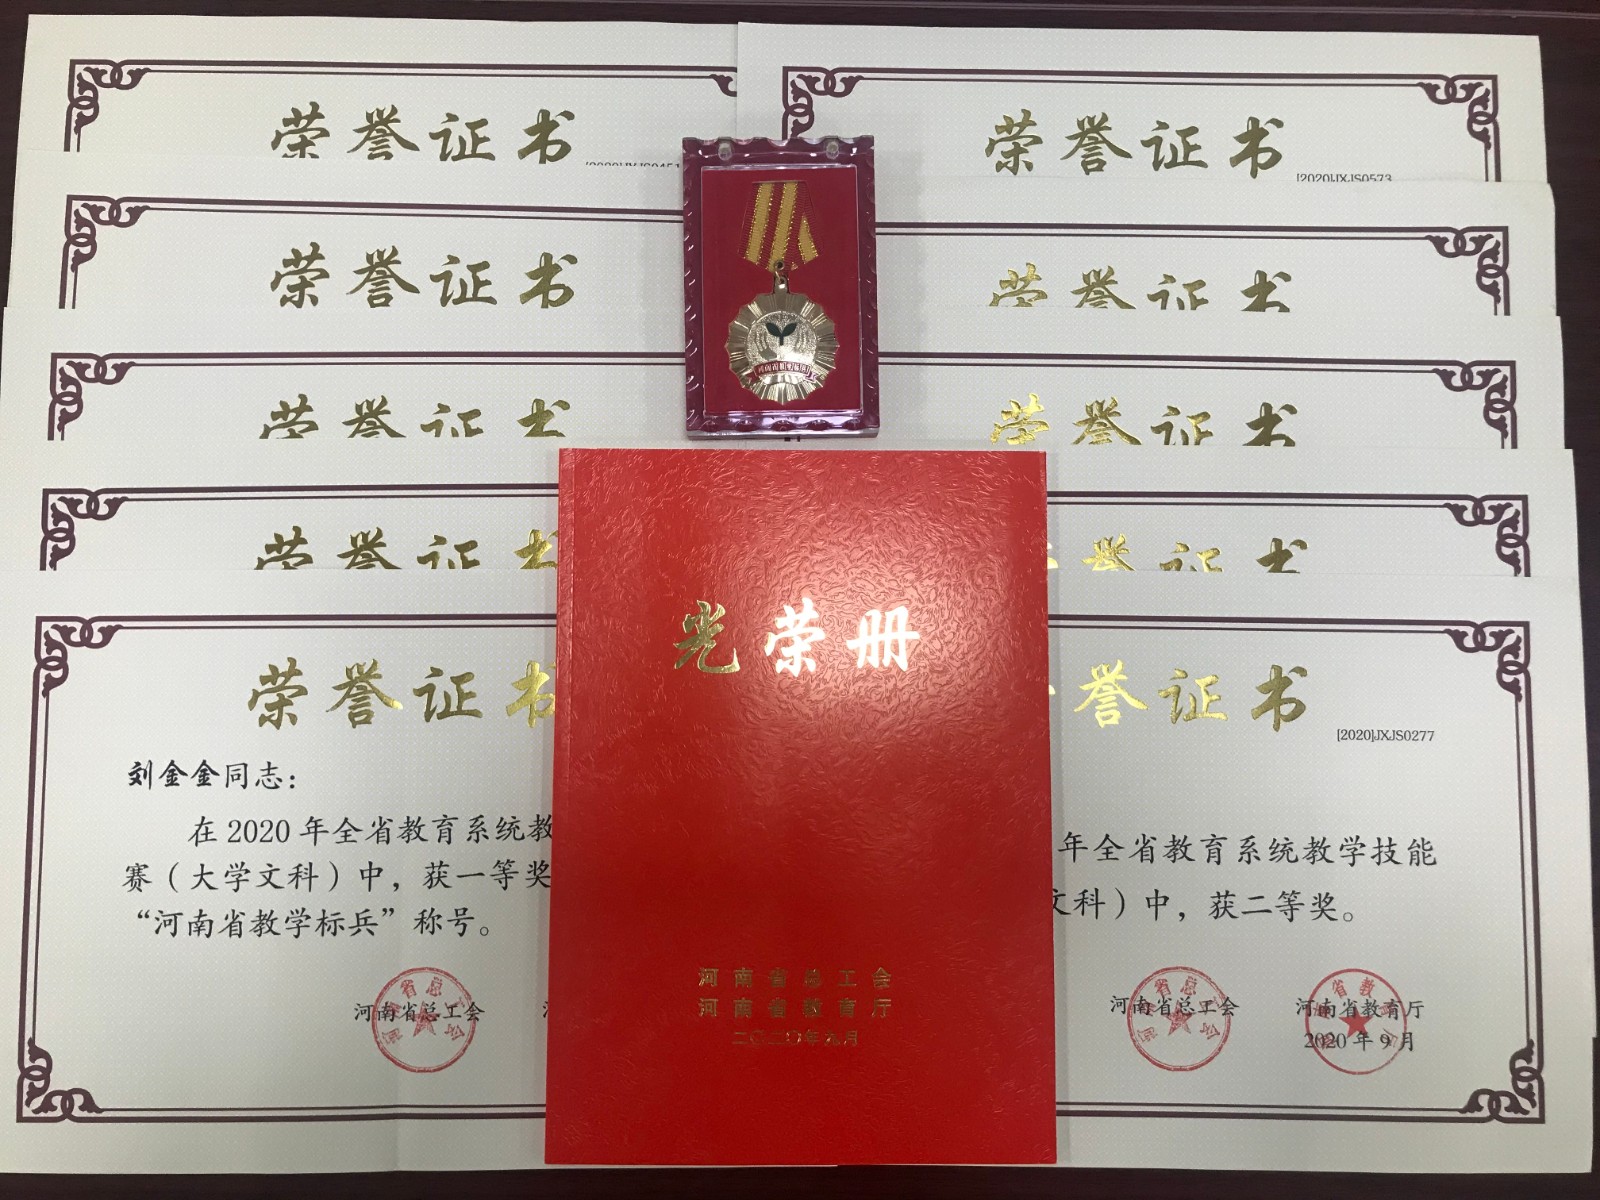 荣誉证书
荣誉证书
[2020]JXJS0573
荣誉证书
荣誉证书
荣誉证书
荣誉证书
荣誉证书
誉证书
荣誉证书
刘金金同志：
在 2020 年全省教育系统教
赛（大学文科）中，获一等奖
“河南省教学标兵”称号。
河南省总工会
光荣册
河南省总工会
河南省教育厅
二〇二〇年九月
誉证书
[2020]JXJS0277
年全省教育系统教学技能
文科）中，获二等奖。
河南省总工会
河南省教育厅
2020 年 9 月